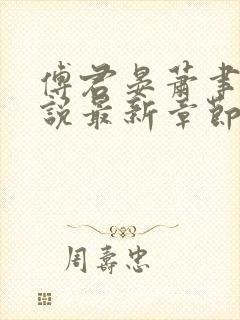 傅君晏蕭事
說最新章節
周壽忠